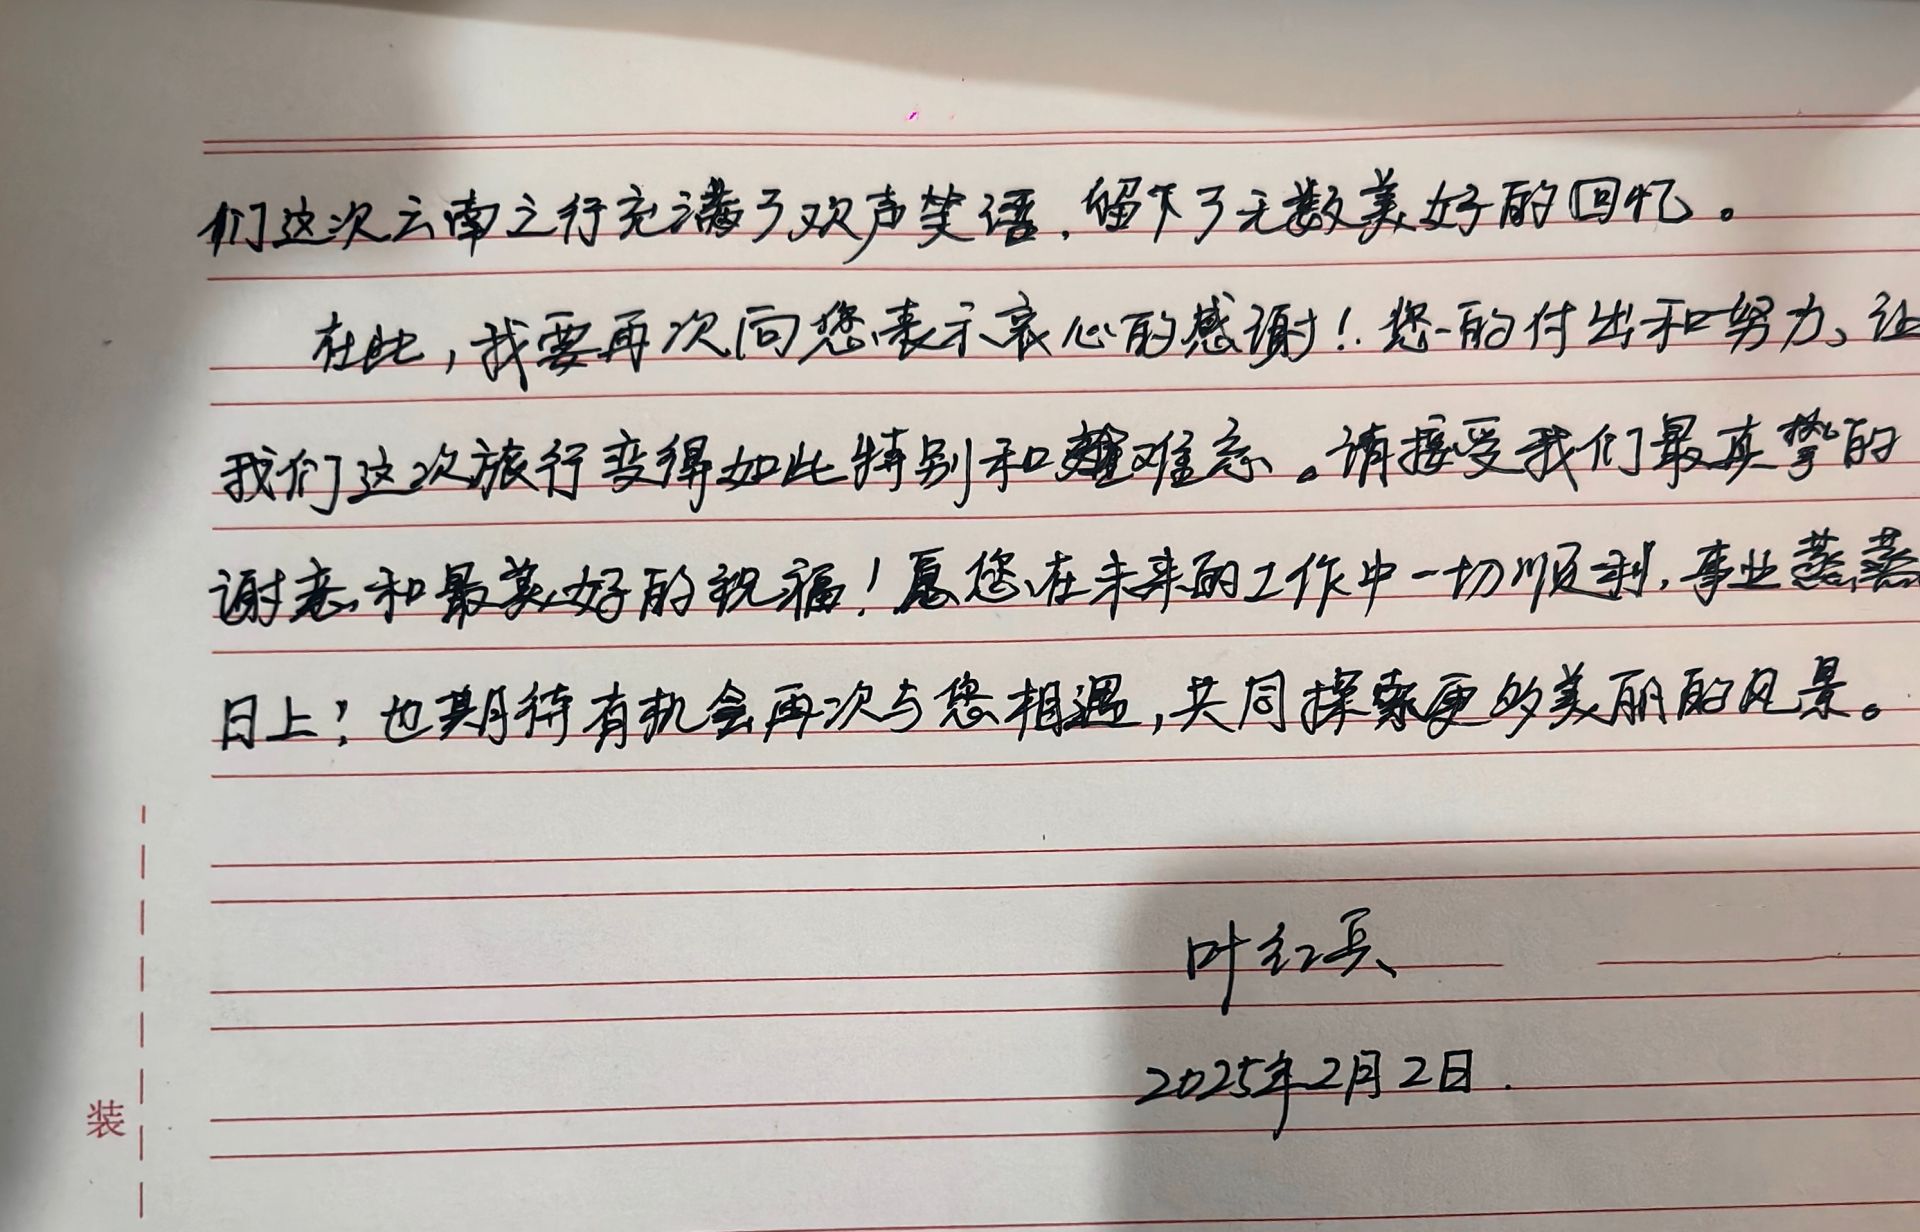 们这次云南之行充满了欢声笑语，留下了无数美好的回忆。
在此，我要再次向您表示衷心的感谢！您的付出和努力、让
我们这次旅行变得如此特别和难忘。请接受我们最真挚的
谢意和最美好的祝福！愿您在未来的工作中一切顺利，事业蒸蒸
日上！也期待有机会再次与您相遇，共同探索更多美丽的风景。
叶红兵
2025年2月2日.
装